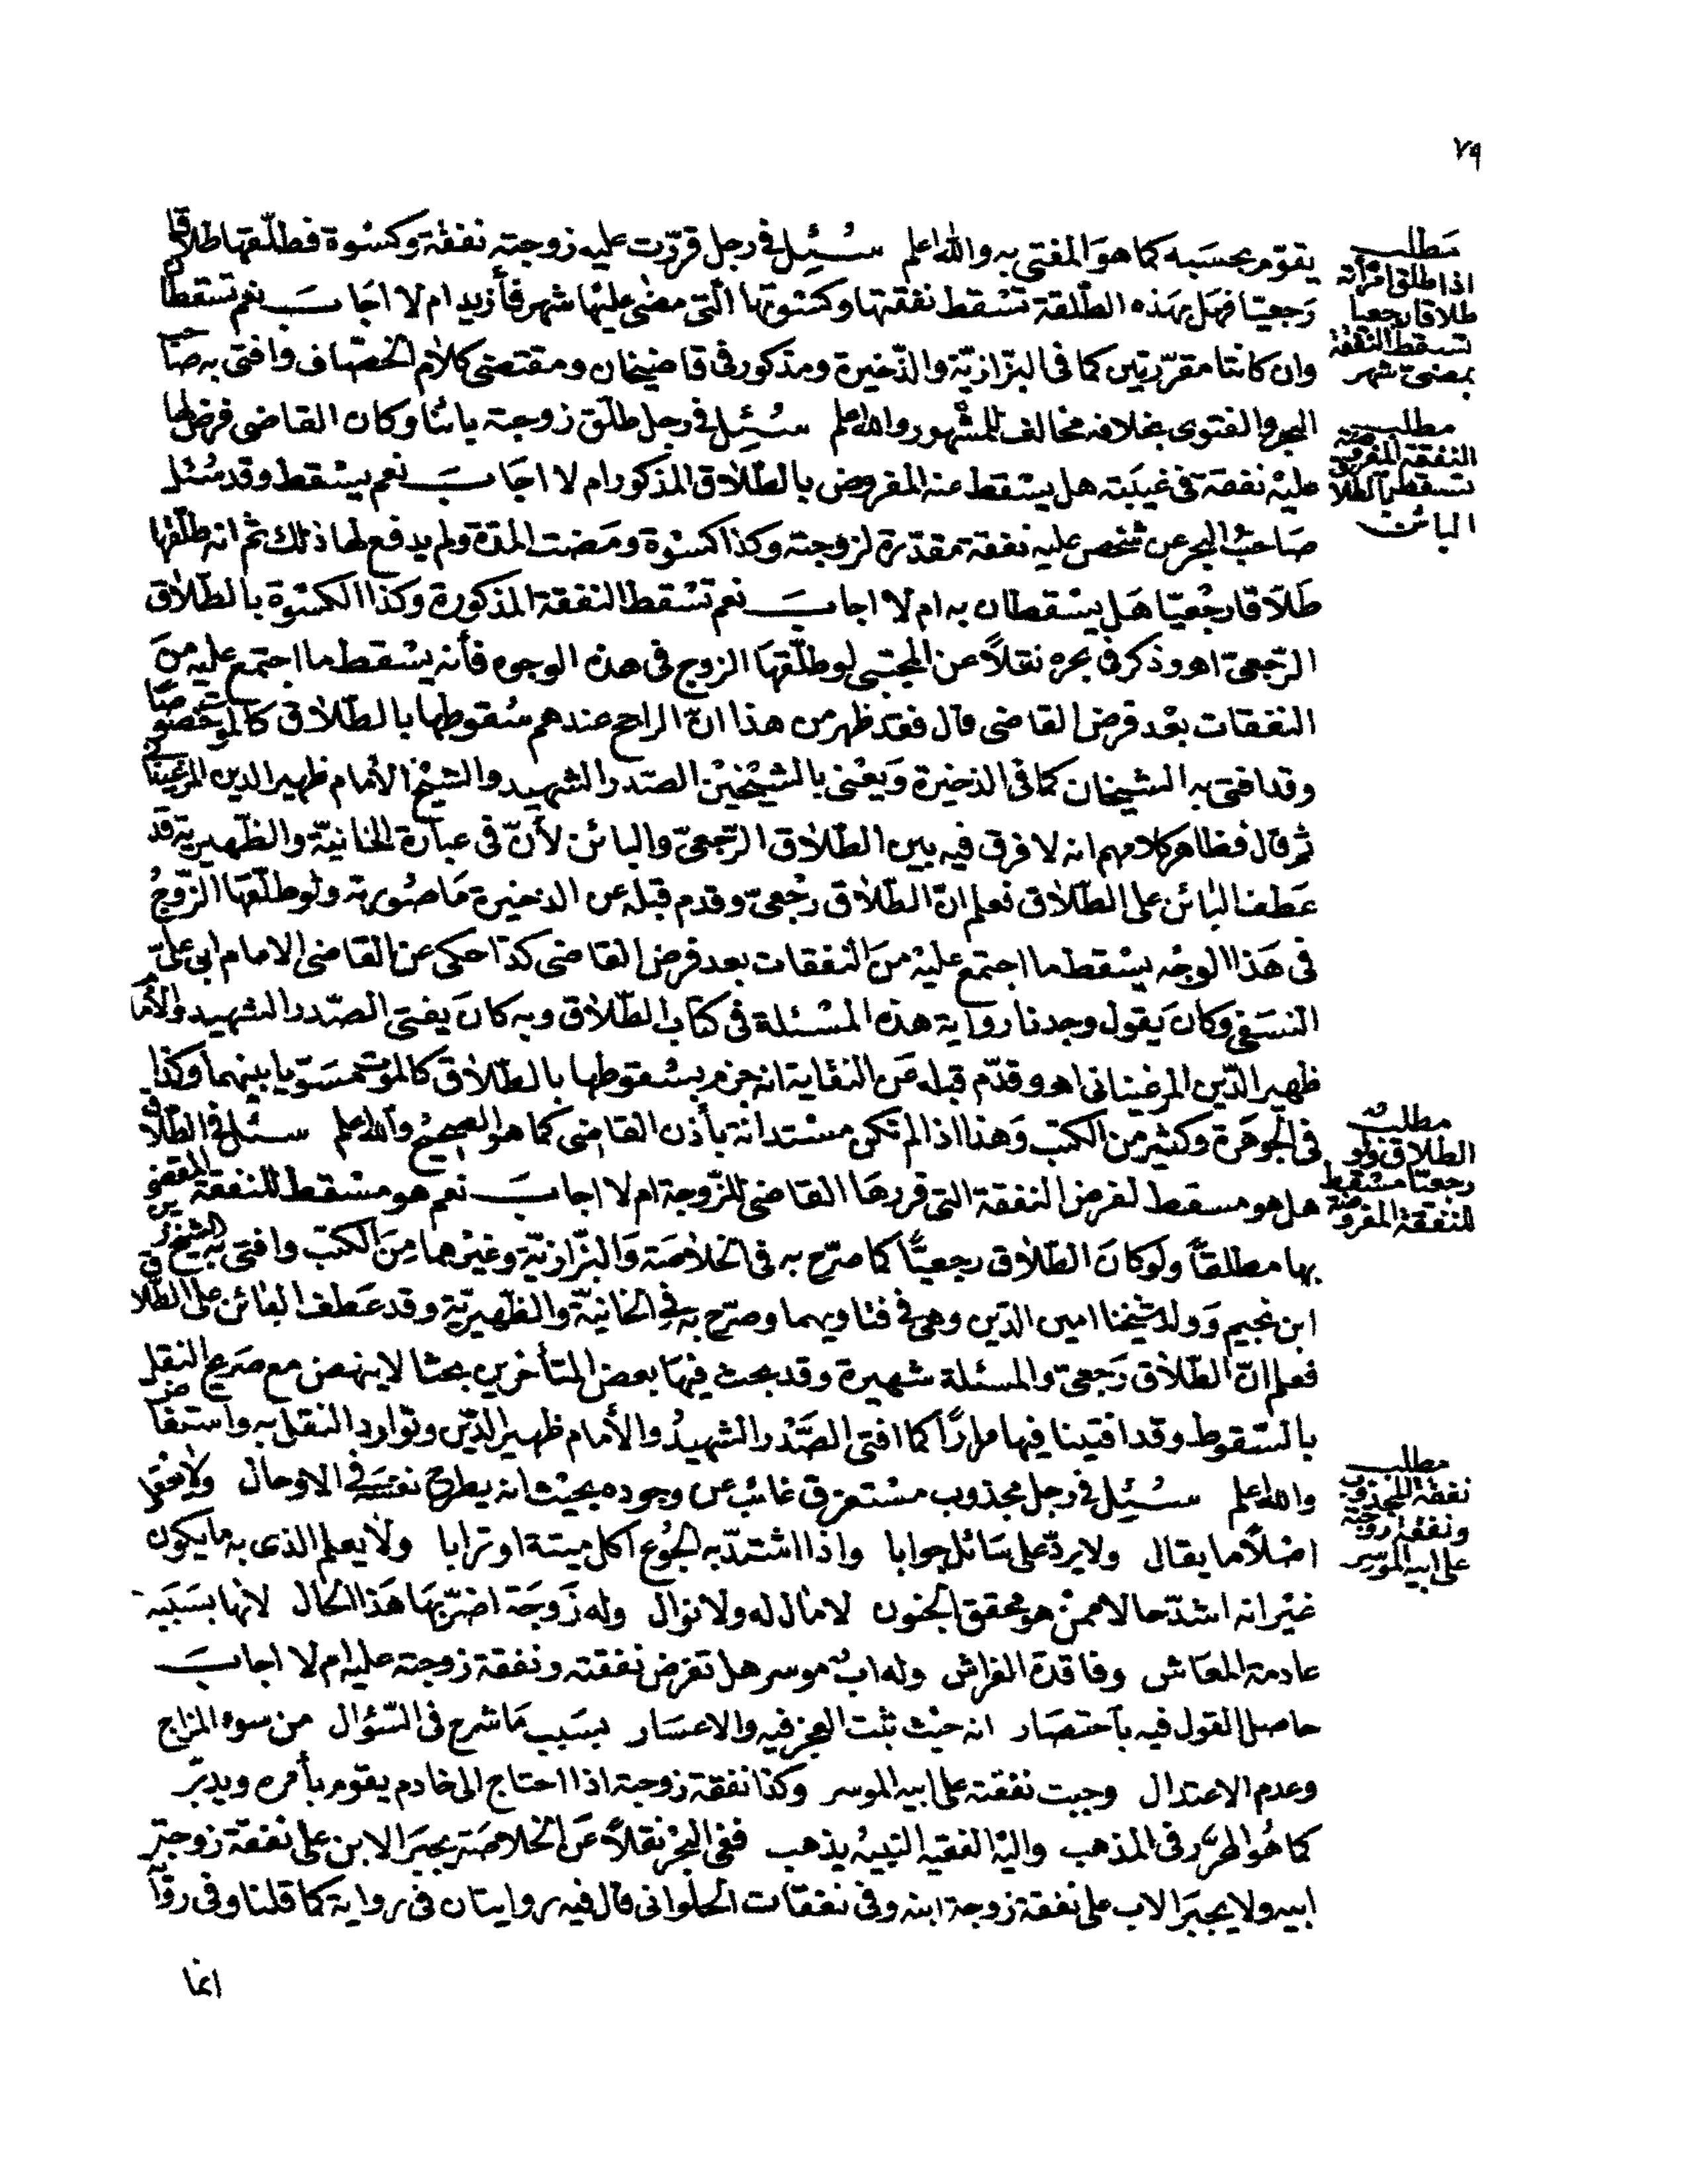 ٧٩
يقوّم بحسبه كما هو المفتى به والله اعلم سُئِل في رجل قررت عليه زوجته نفقة وكسوة فطلّقها طلاقا
رَجعيّا فهل بهذه الطّلقة تسقط نفقتها وكسوتها الّتى مضى عليها شهر فأزيد ام لا اجَابَ نعم تسقطان
وان كانتا مقرّرتين كما فى البزّازيّة والذّخيرة ومذكور فى قاضيخان ومقتضى كلام الخصّاف وافتى به صاحب
البحر والفتوى بخلافه مخالف للمشهور والله اعلم سُئِل في رجل طلّق زوجة بائنا وكان القاضى فرض لها
عليه نفقة فى غيبته هل يسقط عنه المفروض بالطّلاق المذكور ام لا اجَابَ نعم يسقط وقد سُئل
صَاحبُ البحر عن شخص عليه نفقة مقدّرة لزوجته وكذا كسوة ومَضت المدّة ولم يدفع لها ذلك ثم انه طلّقها
طَلاقا رجْعيّا هَل يسقطان به ام لا اجابَ نعم تسْقط النفقة المذكورة وكذا الكسْوة بالطّلاق
الرّجعىّ اهـ وذكر فى بحره نقلاً عن المجتبى لو طلّقها الزوج فى هذه الوجوه فأنه يسْقط ما اجتمع عليه من
النفقات بعْد فرض القاضى قال فقد ظهر من هذا انّ الراجح عندهم سُقوطها بالطّلاق كالموت خصوصًا
وقد افتى به الشيخان كما فى الذخيرة وَيعْنى بالشيْخيْن الصّدر الشهيد والشيْخ الأمام ظهير الدين المرغينانى
ثم قال فظاهر كلامهم انه لا فرق فيه بين الطّلاق الرّجعىّ والبائن لأنّ فى عبارة الخانيّة والظّهيرية قد
عَطفنا البٰائن على الطّلاق فعلم انّ الطّلاق رجْعىّ وقدم قبله عن الذخيرة مَا صُورته ولو طلّقهَا الزّوجُ
فى هَذا الوجْه يسْقط ما اجتمع عليْه منَ النفقات بعد فرض القاضى كذا حكى عن القاضى الامام ابى علىّ
النسَفى وكانَ يَقول وجدنا رواية هذه المسْئلة فى كتاب الطّلاق وبه كانَ يفتى الصّدر الشهيد والأمام
ظهير الدّين المرغينانى اهـ وقدّم قبله عَن النقاية انه جزم بسقوطها بالطّلاق كالموت مسَوّيا بينهما وكذا
فى الجوهَرة وكثير من الكتب وَهذا اذا لم تكن مستدانة بأذن القاضى كما هو الصحيح والله اعلم سئل فى الطّلاق
هل هو مسقط لفرض النفقة التى قررهَا القاضى للزّوجة ام لا اجابَ نعم هو مسْقط للنفقة المقضى
بها مطلقاً ولوكانَ الطّلاق رجعيّاً كما صرّح به فى الخلاصَة وَالبزّازيّة وغيْرهما مِنَ الكتب وافتى به الشيخ زين
ابن نجيم وَولد شيخنا امين الدّين وهى فى فتاويهما وصرّح به فى الخانيّة والظّهيريّة وقد عَطف البائن على الطّلاق
فعلم انّ الطّلاق رَجعىّ والمسئلة شهيرة وقد بحث فيهَا بعض المتأخرين بحثا لا ينهض مع صَريح النقل
بالسّقوط وقد افتينا فيها مرارًا كما افتى الصَّدر الشهيدُ والأمام ظهير الدّين وتوارد النقل به واستفاض
والله اعلم سُئِل فى رجل مجذوب مسْتغرق غائب عن وجوده بحيْث انه يطرح نفسَه فى الاوحال ولا يفقه
اصْلاً ما يقال ولا يردّ على سَائل جوابا واذا اشتدّ به الجُوع اكل ميتة او ترابا ولا يعلم الذى به ما يكون
غيْر انه اشدّ حالا ممنْ هو محقق الجنون لا مٰال له ولا نوال وله زَوجَة اضرّ بهَا هَذا الحال لأنها بسَبَبه
عادمة المعَاش وفاقدة الفراش وله ابٌ موسر هل تفرض نفقته ونفقة زوجته عليه ام لا اجابَ
حاصل القول فيه بأختصَار انه حيْث ثبْت العجز فيه والاعسَار بسَبب مَا شرح فى السّؤال من سوء المزاج
وعدم الاعتدال وجبت نفقته على ابيه الموسر وكذا نفقة زوجته اذا احتاج الى خادم يقوم بأمره ويدبّر
كما هُو المحرّر فى المذهب واليْه الفقيه النبيهُ يذهب ففى البحر نقلاً عَن الخلاصَة يجبَر الابن على نفقة زوجة
ابيه ولا يجبَر الاب على نفقة زوجة ابنه وفى نفقات الحلوانى قال فيه روايتان فى رواية كما قلنا وفى رواية
انما
مَطلب
اذا طلق امرأته
طلاقا رجعيا
تسقط النفقة
بمضىّ شهر
مطلب
النفقة المفروضة
تسقط بالطلاق
البائن
مطلب
الطلاق ولو
رجعيّا مسْقط
للنفقة المفروضة
مطلب
نفقة المجذوب
ونفقة زوجته
على ابيه الموسر